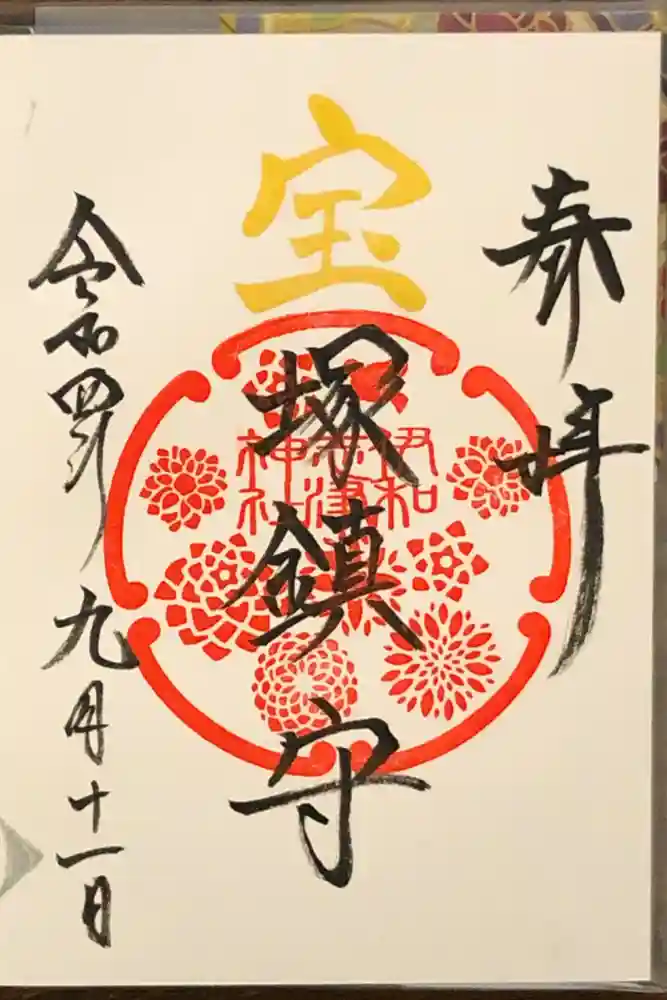 奉拝
宝塚鎮守
伊和
志津
神社
令和四年
九月十一日